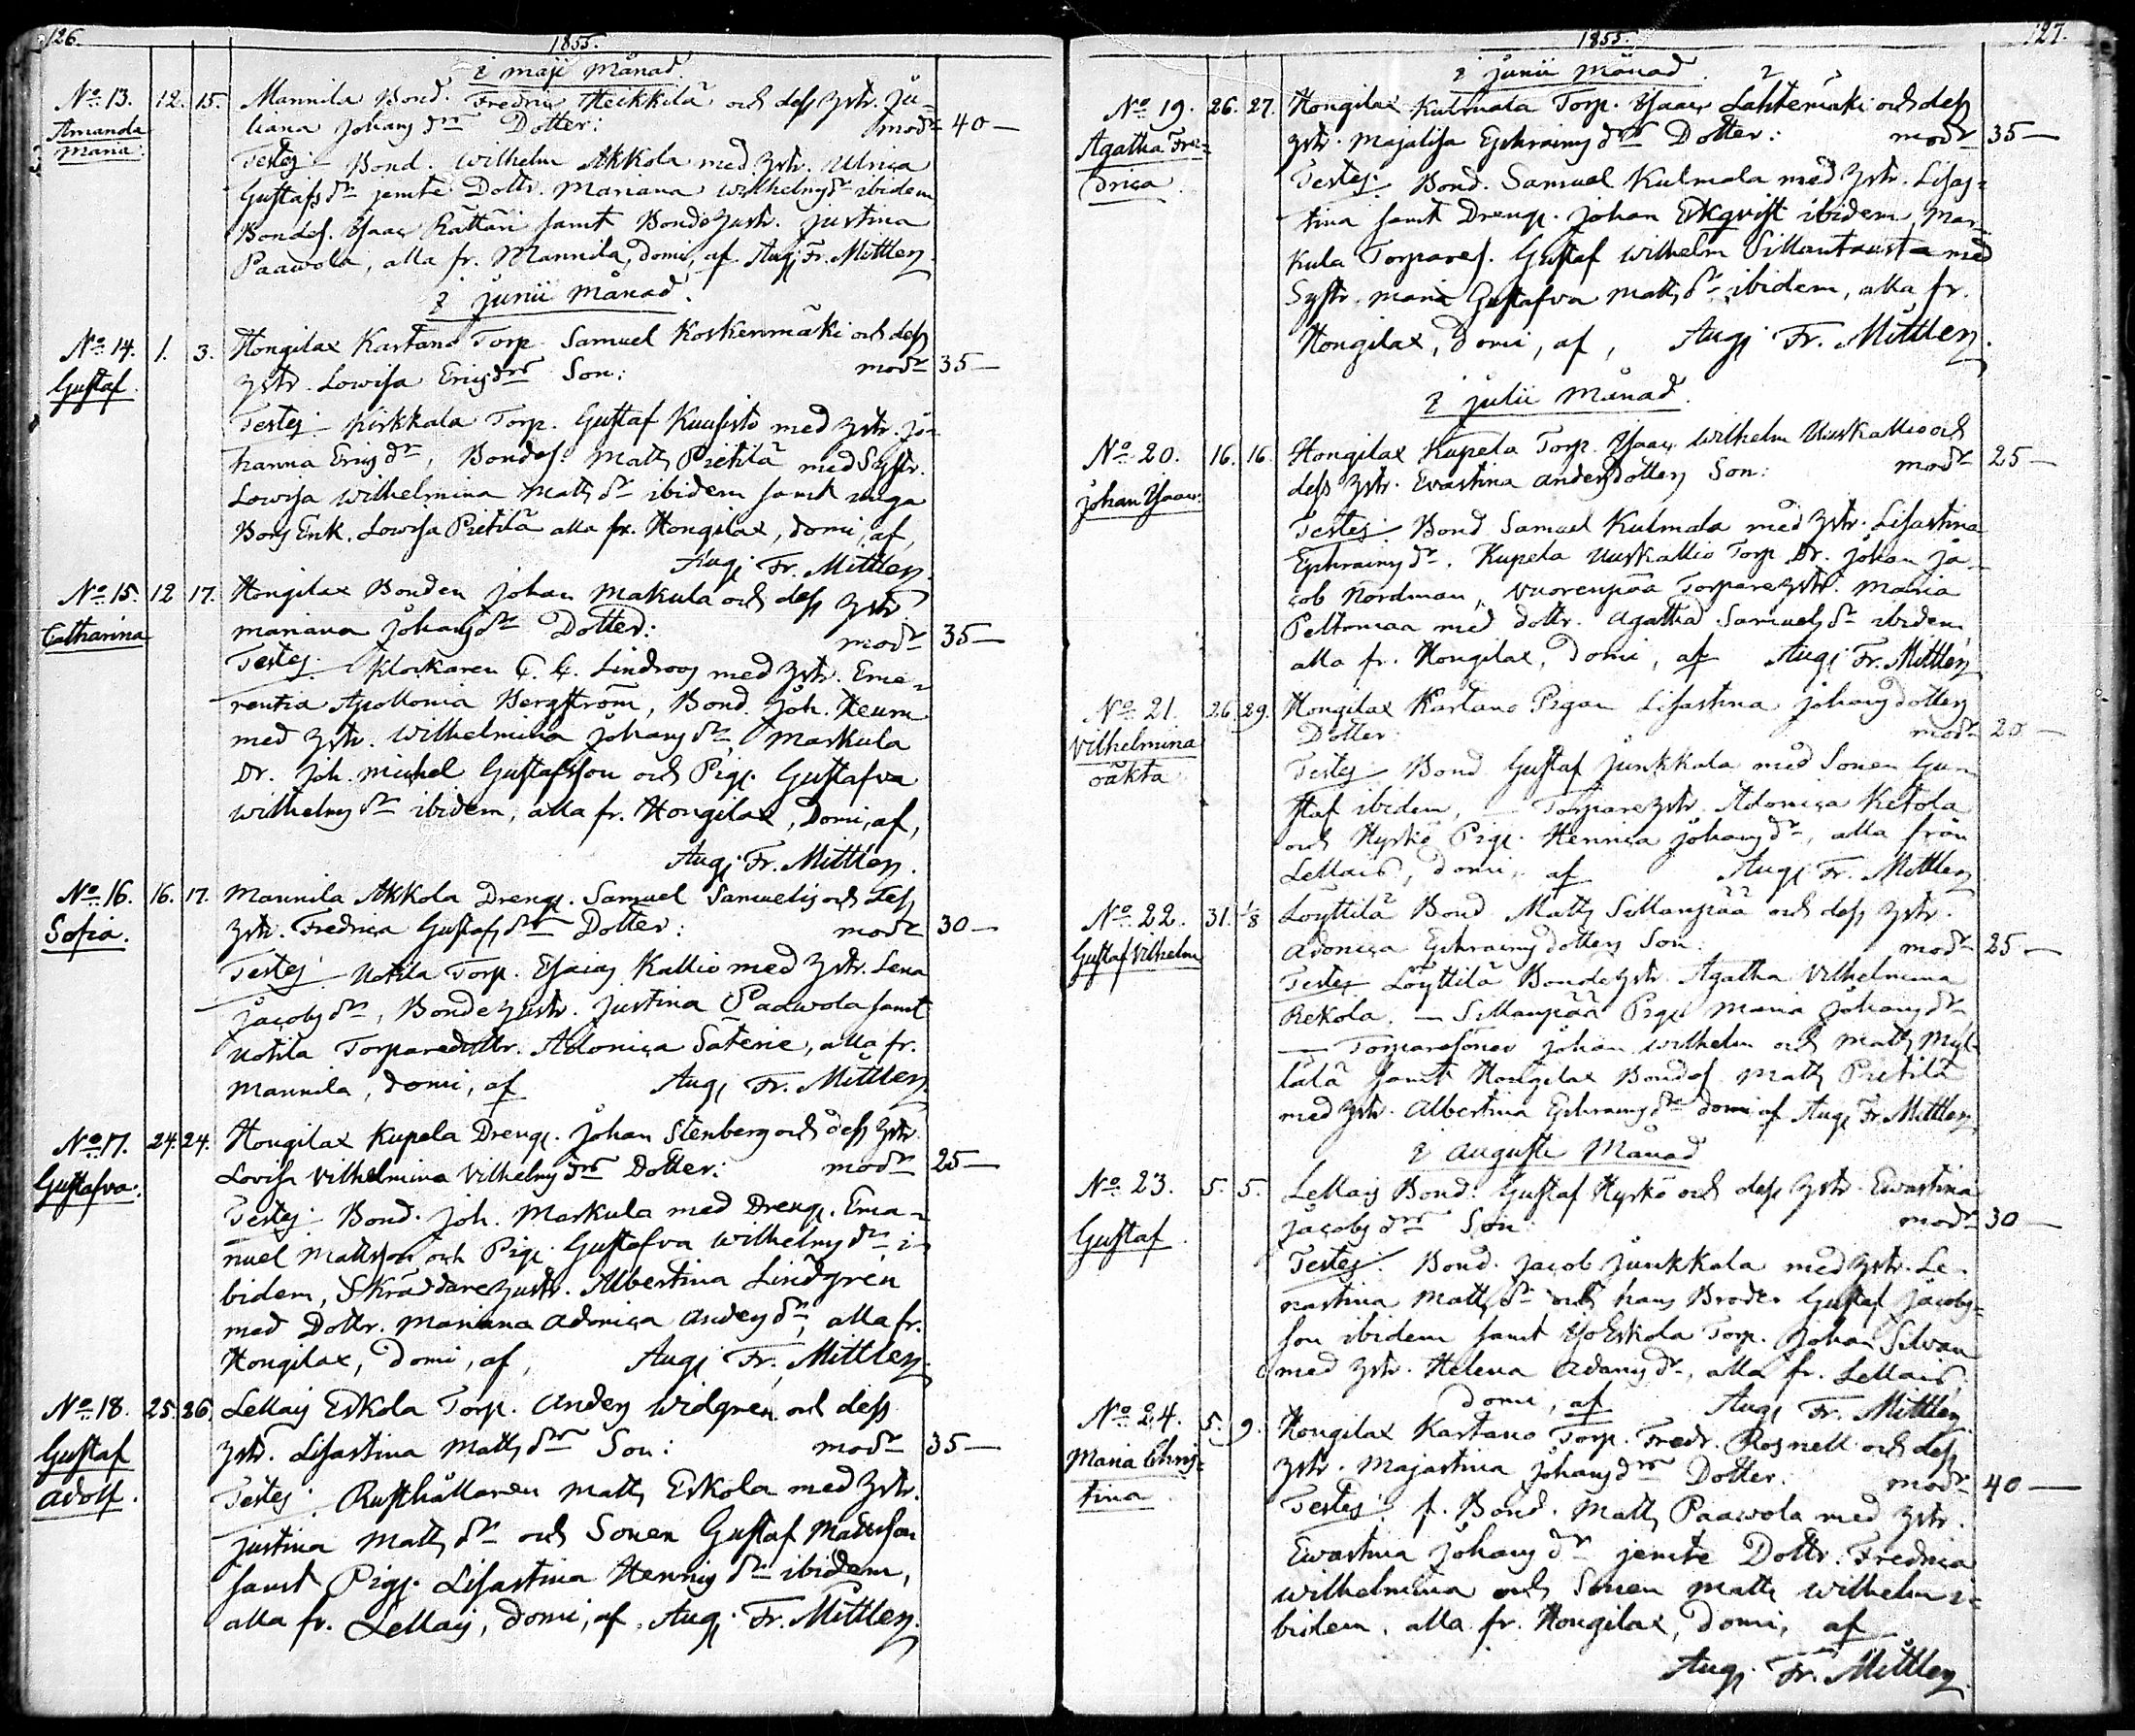 126.
1855.
i maji månad.
No. 13. 12. 15. Mannila Bond. Fredric Heikkilä och dess hstr. Ju-
Amanda liana Johansdrs Dotter: modr 40 —
Maria. Testes: Bond. Wilhelm Akkola med hstr. Ulrica
Gustafsdr jemte Dottr. Mariana Wilhelmsdr ibidem
Bondes. Isaac Rättäri samt Bondehustr. Justina
Paawola, alla fr. Mannila, domi, af Aug. Fr. Mittler.
i junii månad.
No. 14. 1. 3. Hongilax Kartano Torp. Samuel Koskenmäki och dess
Gustaf. hstr. Lowisa Ericsdrs Son: modr 35 —
Testes: Kirkkala Torp. Gustaf Kuusisto med hstr. Jo-
hanna Ericsdr, Bondes. Matts Pietilä med Systr.
Lowisa Wilhelmina Mattsdr ibidem samt unga
Enk. Lowisa Pietilä alla fr. Hongilax, domi, af,
Aug. Fr. Mittler.
No. 15. 12 17. Hongilax Bonden Johan Makula och dess hstr
Catharina Mariana Johansdrs Dotter: modr 35 —
Testes: Klockaren C. G. Lindroos med hstr. Eme-
rentia Apollonia Bergström, Bond. Joh. Heurn
med hstr. Wilhelmina Johansdr, Markula
Dr. Joh. Michel Gustafsson och Pig. Gustafva
Wilhelmsdr ibidem, alla fr. Hongilax, Domi, af,
Aug. Fr. Mittler.
No. 16. 16. 17. Mannila Akkola Dreng. Samuel Samuelis och dess
Sofia. hstr. Fredrica Gustafsdrs Dotter: modr 30 —
Testes: Uotila Torp. Esaias Kallio med hstr. Lena
Jacobsdr, Bondehustr. Justina Paawola samt
Uotila Torparedottr. Adonica Saterie, alla fr.
Mannila, domi, af Aug. Fr. Mittler.
No. 17. 24. 24. Hongilax Kupela Dreng. Johan Stenberg och dess hstr.
Gustafva. Lovisa Vilhelmina Vilhelmsdrs Dotter: modr 25 —
Testes: Bond. Joh. Markula med Dreng. Ema-
nuel Mattsson och Pig. Gustafva Wilhelmsdr i-
bidem, Skräddarehustr. Albertina Lindgren
med Dottr. Mariana Adonica Andersdr, alla fr.
Hongilax, domi, af, Aug. Fr. Mittler.
No. 18. 25. 26. Lellais Eskola Torp. Anders Widgren och dess
Gustaf hstr. Lisastina Mattsdrs Son: modr 35 —
Adolf. Testes: Rusthållaren Matts Eskola med hstr.
Justina Mattsdr och Sonen Gustaf Mattsson
samt Pig. Lisastina Hennigsdr ibidem,
alla fr. Lellais, domi, af, Aug. Fr. Mittler.
127.
1855.
i junii månad.
No. 19. 26. 27. Hongilax Kulmala Torp. Isaac Lähtemäki och dess
Agatha Fre- hstr. Majalisa Ephraimsdrs Dotter: modr 35 —
drica. Testes: Bond. Samuel Kulmala med hstr. Lisas-
tina samt Dreng. Johan Ekqvist ibidem, Mar-
kula Torpares. Gustaf Wilhelm Sillantausta med
Systr. Maria Gustafva Mattsdr ibidem, alla fr.
Hongilax, domi, af, Aug. Fr. Mittler.
i julii månad.
No. 20. 16. 16. Hongilax Kupela Torp. Isaac Wilhelm Uuskallio och
Johan Isaac. dess hstr. Evastina Andersdotters Son: modr 25 —
Testes: Bond Samuel Kulmala med hstr. Lisastina
Ephraimsdr. Kupela Uuskallio Torp. Dr. Johan Ja-
cob Nordman, Vuorenpää Torparehstr. Maria
Peltomaa med dottr. Agatha Samuelsdr ibidem
alla fr. Hongilax, domi, af Aug. Fr. Mittler
No. 21. 26. 29. Hongilax Kartano Pigan Lisastina Johansdotters
Vilhelmina Dotter: modr 20 —
oäkta Testes: Bond Gustaf Junkkala med Sonen Gus-
taf ibidem, — Torparehstr. Adonica Ketola
och Hyrkö Pig. Hennica Johansdr, alla från
Lellais, domi, af Aug. Fr. Mittler
No. 22. 31. 1/8 Löyttilä Bond Matts Sillanpää och dess hstr.
Gustaf Vilhelm Adonica Ephraimsdotters Son: modr 25 —
Testes: Löyttilä Bondehstr. Agatha Vilhelmina
Rekola, — Sillanpää Pig. Maria Johansdr
— Torparesöner Johan Wilhelm och Matts Myl-
lälä samt Hongilax Bondes. Matts Pietilä
med hstr. Albertina Ephraimsdr domi af Aug. Fr. Mittler
i augusti månad
No. 23. 5. 5. Lellais Bond. Gustaf Hyrkö och dess hstr. Ewastina
Gustaf. Jacobsdrs Son: modr 30 —
Testes: Bond. Jacob Junkkala med hstr. Le-
nastina Mattsdr och hans Broder Gustaf Jacobs-
son ibidem samt Iso Eskola Torp. Johan Silvan
med hstr. Helena Adamsdr, alla fr. Lellais,
domi, af Aug. Fr. Mittler.
No. 24. 5. 9. Hongilax Kartano Torp. Fredr. Rosnell och dess
Maria Chris- hstr. Majastina Johansdrs Dotter: modr 40 —
tina. Testes: f. Bond. Matts Paawola med hstr.
Ewastina Johansdr jemte Dottr. Fredrica
Wilhelmina och Sonen Matts Wilhelm i-
bidem, alla fr. Hongilax, domi, af
Aug. Fr. Mittler.